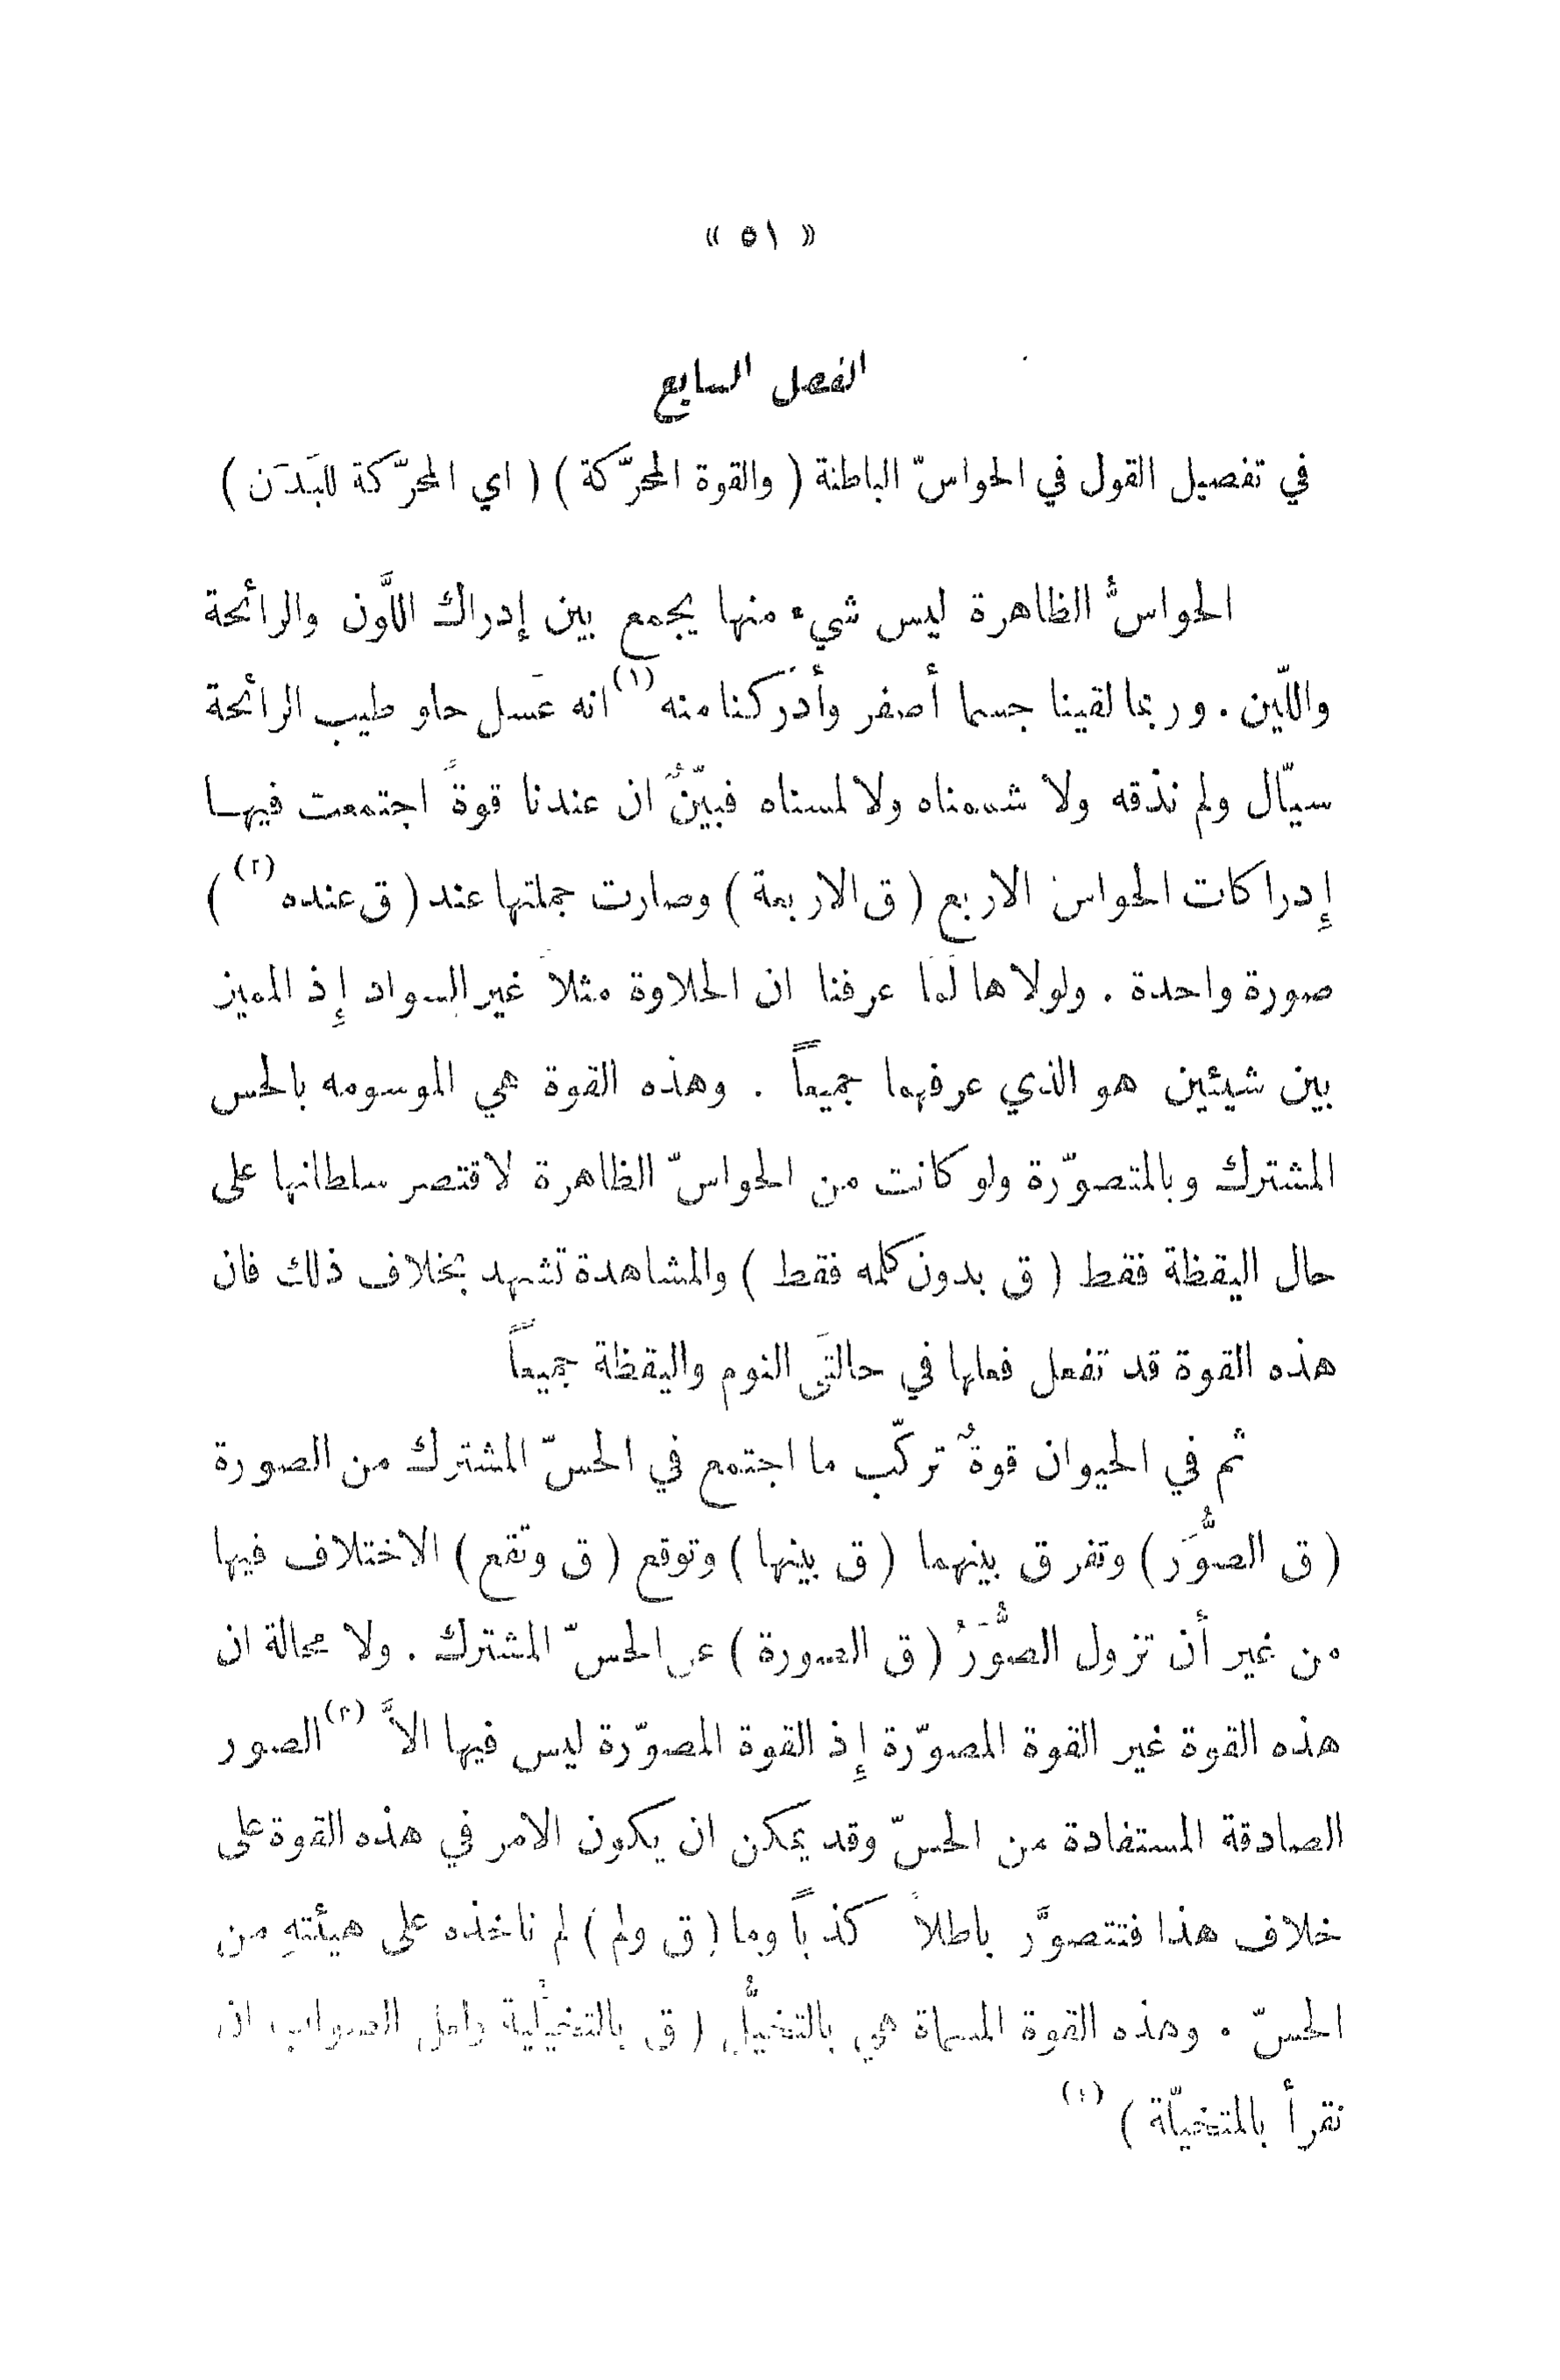 « ٥١ »
الفصل السابع
في تفصيل القول في الحواسّ الباطنة ( والقوة المحرّكة ) ( اي المحرّكة للبَدَن )
الحواسُّ الظاهرة ليس شيء منها يجمع بين إدراك اللَّون والرائحة
واللّين . وربما لقينا جسما أصفر وأدَركنا منه (١) انه عَسل حلو طيب الرائحة
سيّال ولم نذقه ولا شممناه ولا لمسناه فبيّنٌ ان عندنا قوةً اجتمعت فيهـا
إِدراكات الحواس الاربع ( ق الاربعة ) وصارت جملتها عند ( ق عنده (٢) )
صورة واحدة . ولولاها لَمَا عرفنا ان الحلاوة مثلاً غير السواد إِذ المميز
بين شيئين هو الذي عرفهما جميعاً . وهذه القوة هي الموسومه بالحس
المشترك وبالمتصوّرة ولو كانت من الحواسّ الظاهرة لاقتصر سلطانها على
حال اليقظة فقط ( ق بدون كلمه فقط ) والمشاهدة تشهد بخلاف ذلك فان
هذه القوة قد تفعل فعلها في حالتَى النوم واليقظة جميعاً
ثم في الحيوان قوةٌ تركّب ما اجتمع في الحسّ المشترك من الصورة
( ق الصُّوَر ) وتفرق بينهما ( ق بينها ) وتوقع ( ق وتقع ) الاختلاف فيها
من غير أن تزول الصُّوَرُ ( ق الصورة ) عن الحسّ المشترك . ولا محالة ان
هذه القوة غير القوة المصوّرة إِذ القوة المصوّرة ليس فيها الاَّ (٣) الصور
الصادقة المستفادة من الحسّ وقد يمكن ان يكون الامر في هذه القوة على
خلاف هذا فتتصوَّر باطلاً كذباً وما ( ق ولم ) لم ناخذه على هيئتهِ من
الحسّ . وهذه القوة المسماة هي بالتخيُّل ( ق بالتخيُّلية ولعل الصواب ان
نقرأ بالمتخيّلة ) (٤)